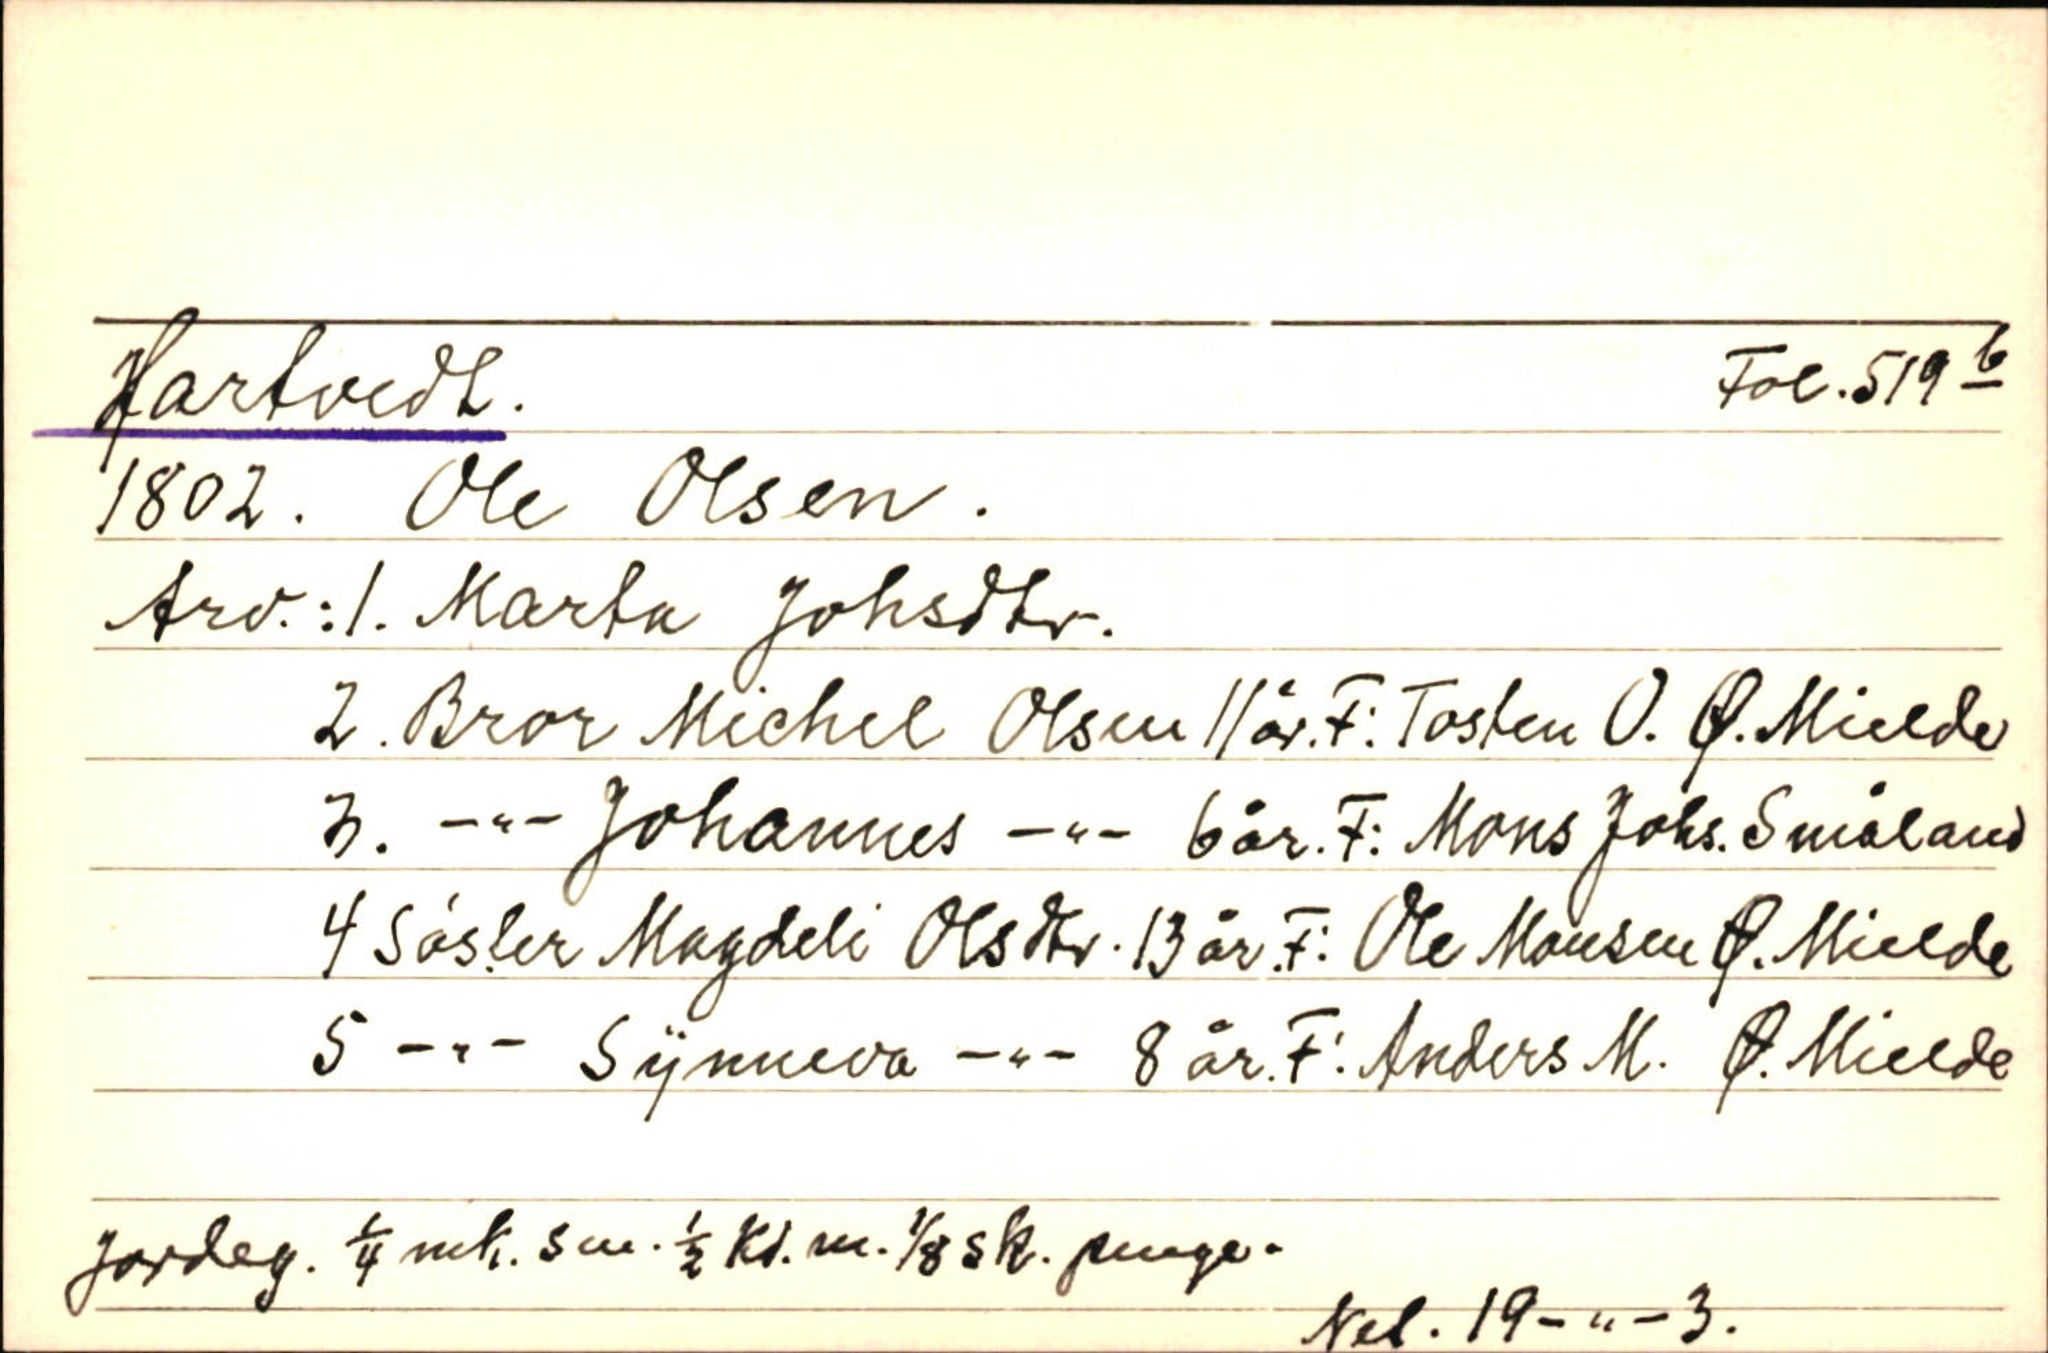 Hartvedt. Fol. 519 b
1802. Ole Olsen.
Arv.: 1. Marta Johsdtr.
2. Bror Michel Olsen 11 år. F: Tosten O. Ø. Mielde
3. -"- Johannes -"- 6 år. F: Mons Johs. Småland
4 Søster Magdeli Olsdtr. 13 år. F: Ole Monsen Ø. Mielde
5 -"- Sÿnneva -"- 8 år. F: Anders M. Ø. Mielde
Jordeg. 1/4 mk. sm. 1/2 Kd. m. 1/8 sk. penge.
Nel. 19-"-3.